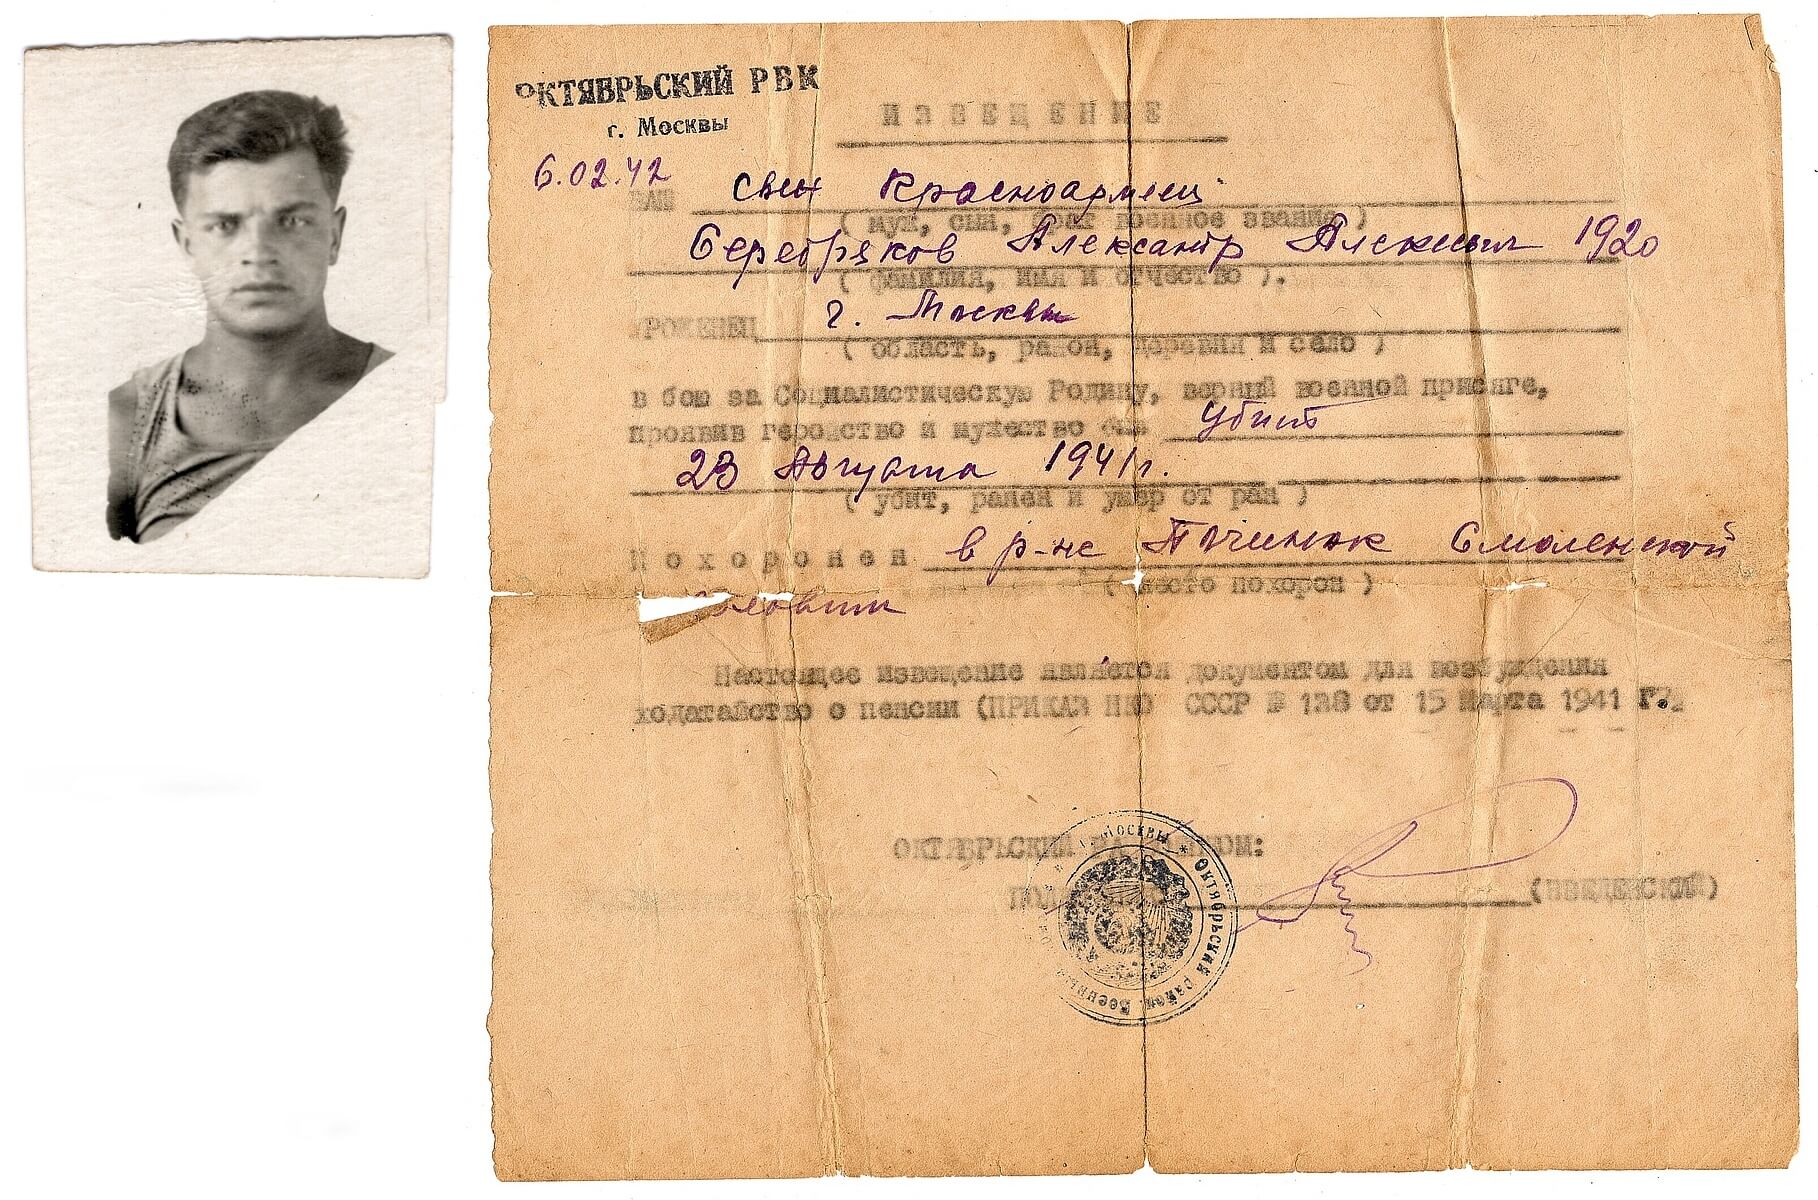 ОКТЯБРЬСКИЙ РВК
г. Москвы
ИЗВЕЩЕНИЕ
6.02.42
ВАШ сын Красноармеец
( муж, сын, брат военное звание )
Серебряков Александр 1920
( фамилия, имя и отчество ).
УРОЖЕНЕЦ г. Москвы
( область, район, деревня и село )
в бою за Социалистическую Родину, верный военной присяге,
проявив геройство и мужество был убит
23 Августа 1941 г.
( убит, ранен и умер от ран )
Похоронен в р-не Починок Смоленской
( место похорон )
Настоящее извещение является документом для возбуждения
ходатайство о пенсии (ПРИКАЗ НКО СССР № 138 от 15 Марта 1941 г.
ОКТЯБРЬСКИЙ
(ВВЕДЕНСКИЙ)
г. Москвы * Октябрьский район. Военный